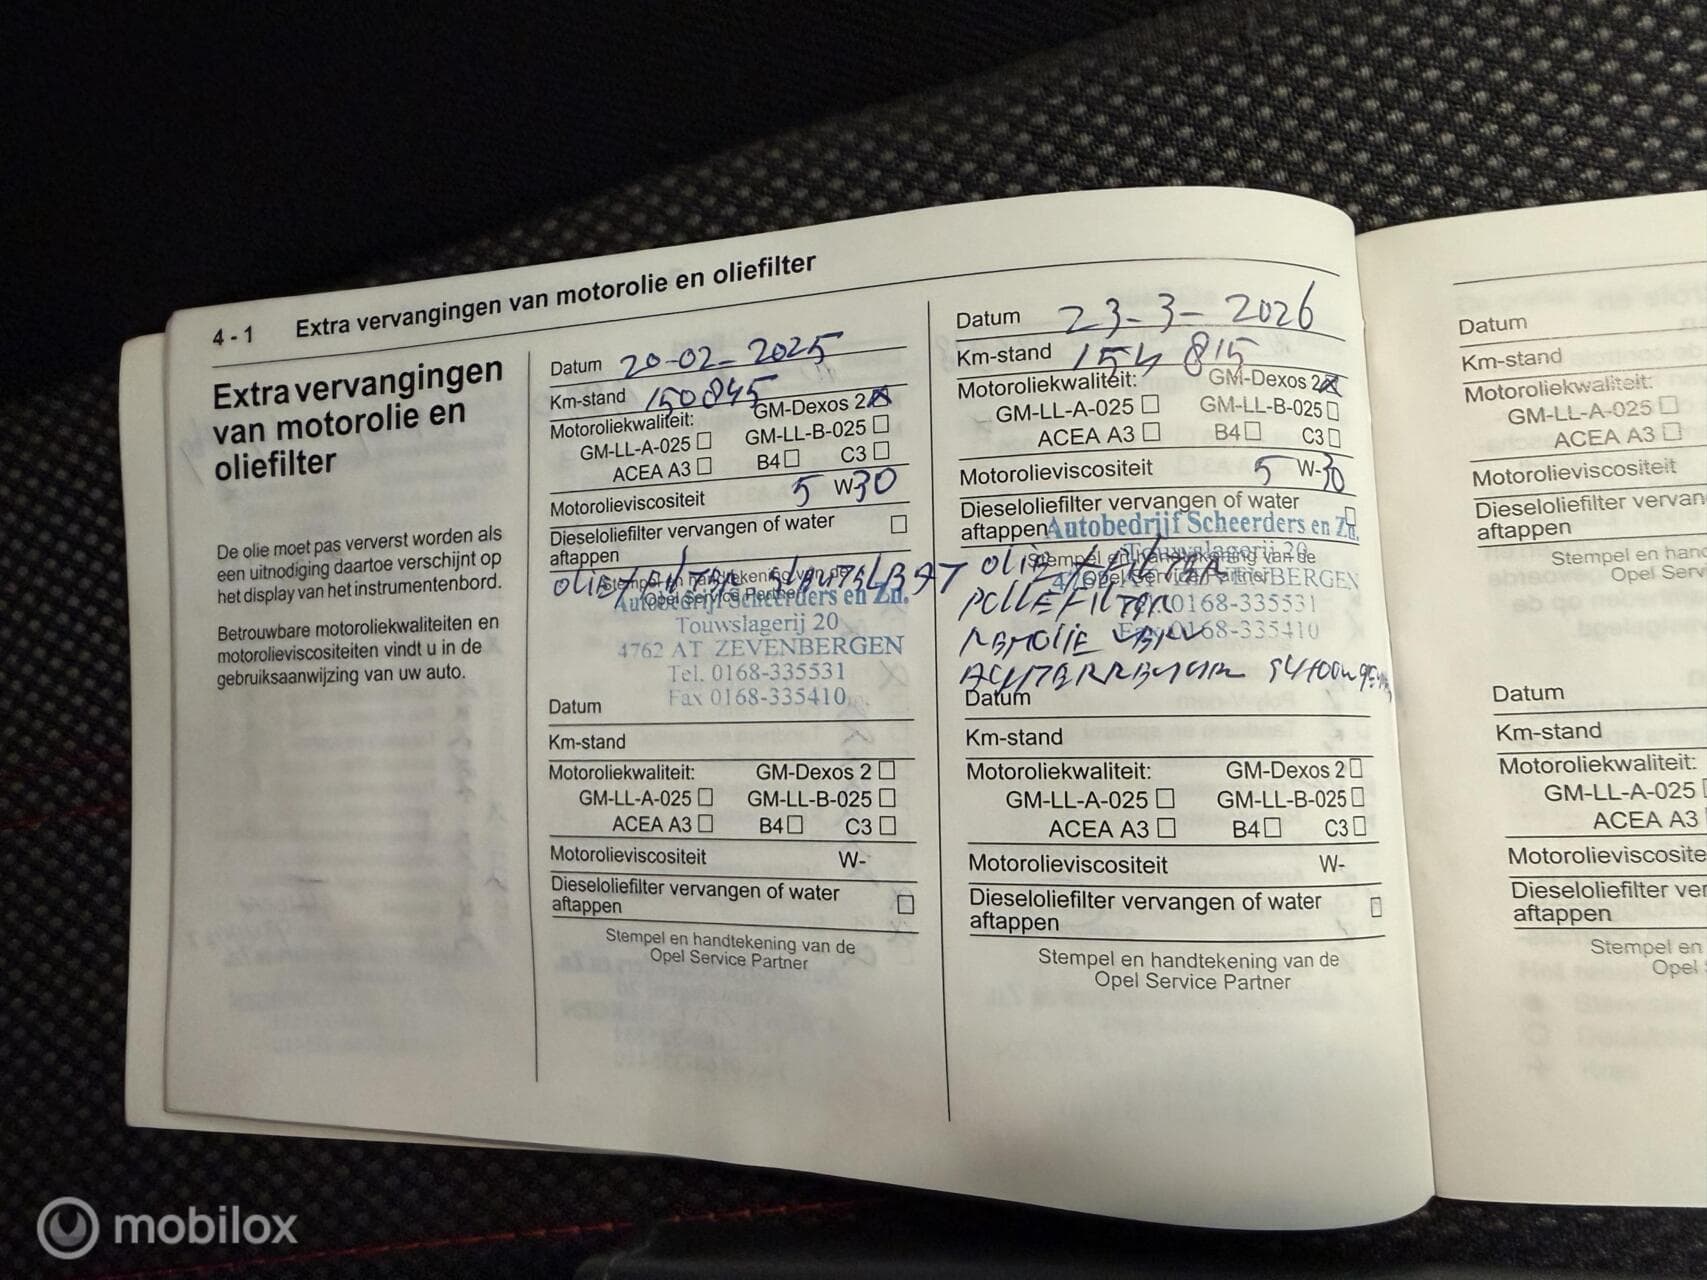 4 - 1 Extra vervangingen van motorolie en oliefilter
Extra vervangingen
van motorolie en
oliefilter
De olie moet pas ververst worden als
een uitnodiging daartoe verschijnt op
het display van het instrumentenbord.
Betrouwbare motoroliekwaliteiten en
motorolieviscositeiten vindt u in de
gebruiksaanwijzing van uw auto.
Datum 20-02-2025
Km-stand 150845
Motoroliekwaliteit: GM-Dexos 2
GM-LL-A-025 GM-LL-B-025
ACEA A3 B4 C3
Motorolieviscositeit 5 W30
Dieseloliefilter vervangen of water
aftappen
Stempel en handtekening van de
Opel Service Partner
OLIE/FILTER SLEUTELBAT
Autobedrijf Scheerders en Zn.
Touwslagerij 20
4762 AT ZEVENBERGEN
Tel. 0168-335531
Fax 0168-335410
Datum
Km-stand
Motoroliekwaliteit: GM-Dexos 2
GM-LL-A-025 GM-LL-B-025
ACEA A3 B4 C3
Motorolieviscositeit W-
Dieseloliefilter vervangen of water
aftappen
Stempel en handtekening van de
Opel Service Partner
Datum 23-3-2026
Km-stand 154 815
Motoroliekwaliteit: GM-Dexos 2
GM-LL-A-025 GM-LL-B-025
ACEA A3 B4 C3
Motorolieviscositeit 5 W-30
Dieseloliefilter vervangen of water
aftappen
Autobedrijf Scheerders en Zn.
Touwslagerij 20
Stempel en handtekening van de
Opel Service Partner
ZEVENBERGEN
0168-335531
Fax 0168-335410
OLIE/FILTER
POLLEFILTER
REMOLIE
Datum
Km-stand
Motoroliekwaliteit: GM-Dexos 2
GM-LL-A-025 GM-LL-B-025
ACEA A3 B4 C3
Motorolieviscositeit W-
Dieseloliefilter vervangen of water
aftappen
Stempel en handtekening van de
Opel Service Partner
Datum
Km-stand
Motoroliekwaliteit:
GM-LL-A-025
ACEA A3
Motorolieviscositeit
Dieseloliefilter vervan
aftappen
Stempel en hand
Opel Servi
Datum
Km-stand
Motoroliekwaliteit:
GM-LL-A-025
ACEA A3
Motorolieviscosite
Dieseloliefilter ver
aftappen
Stempel en
Opel
mobilox